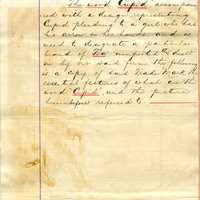 The word Cupid accompan
ied with a design representing
Cupid pleading to a girl who has
his arrow in her hands and is
used to designate a particular
brand of Tea imported & dealt
in by our said firm, the following
is a copy of said Trade Mark, the
essential features of which are the
word "Cupid", and the picture
hereinbefore referred to.